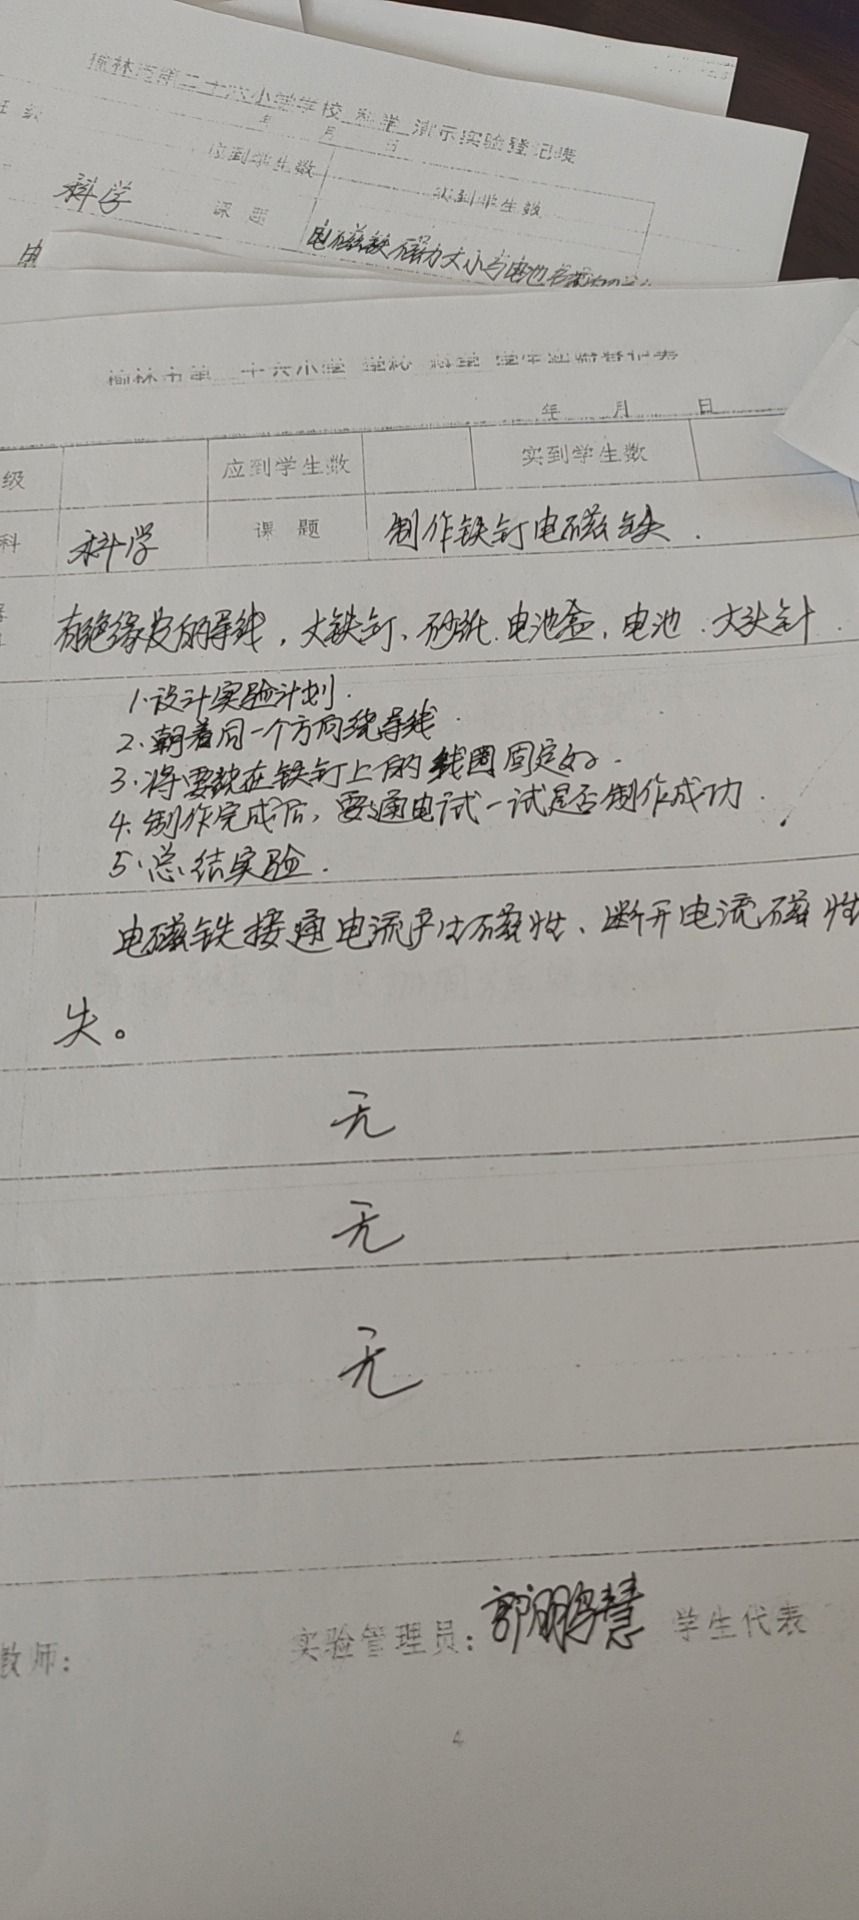 榆林市第二十六小学学校 科学 演示实验登记表
年 月 日
班 级 应到学生数 实到学生数
科学 课 题 电磁铁磁力大小与电池
电
榆林市第二十六小学 学校 科学 学生实验登记表
年 月 日
级 应到学生数 实到学生数
科 科学 课 题 制作铁钉电磁铁.
有绝缘皮的导线, 大铁钉、砂纸. 电池盒, 电池. 大头针.
1.设计实验计划.
2.朝着同一个方向绕导线.
3.将要绕在铁钉上的线圈固定好.
4.制作完成后, 要通电试一试是否制作成功.
5.总结实验.
电磁铁接通电流产生磁性、断开电流磁性
失。
无
无
无
教师: 实验管理员: 郭鹏慧 学生代表
4